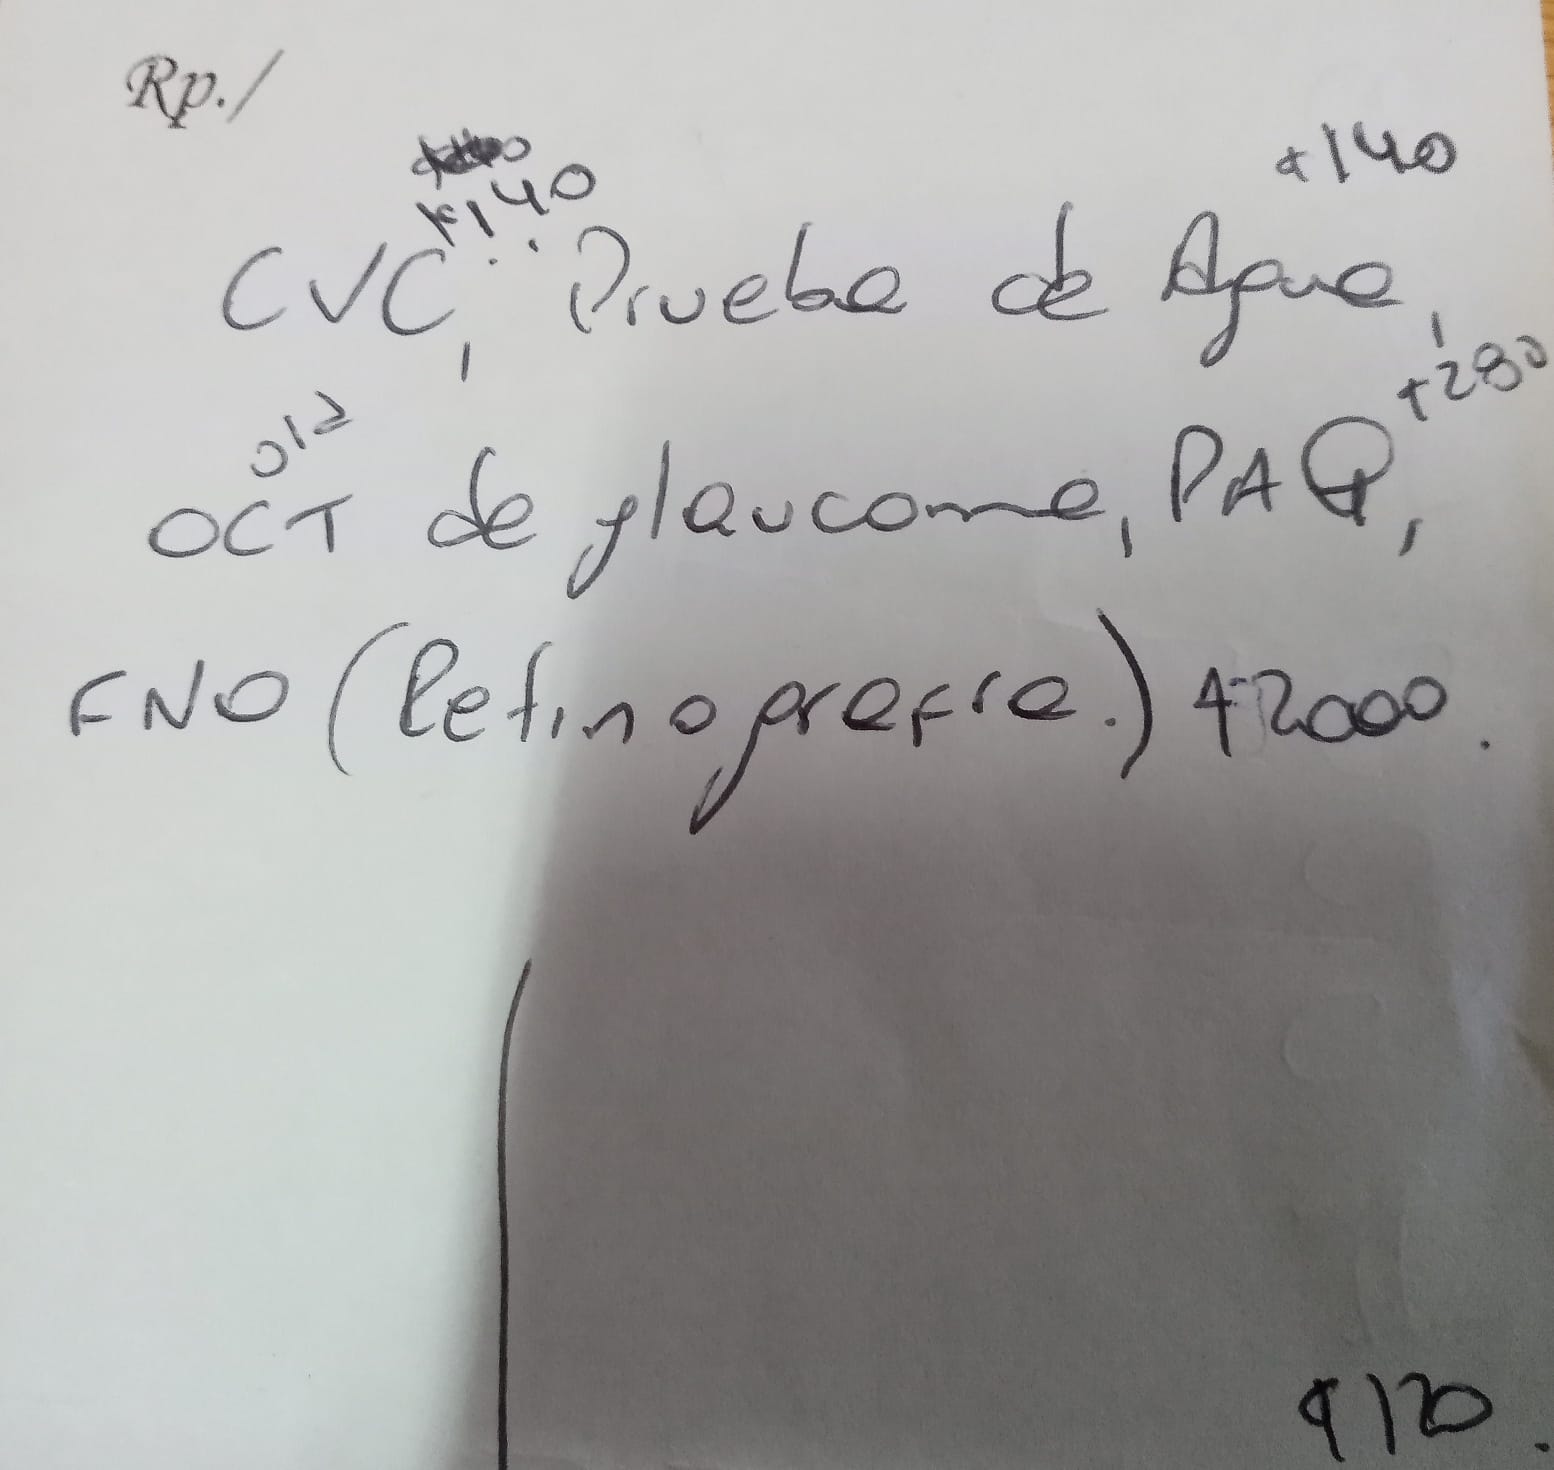 Rp./
+140
+140
CVC, Prueba de Agua,
+280
OCT de glaucoma, PAQ,
FNO (Retinografia.) +2000.